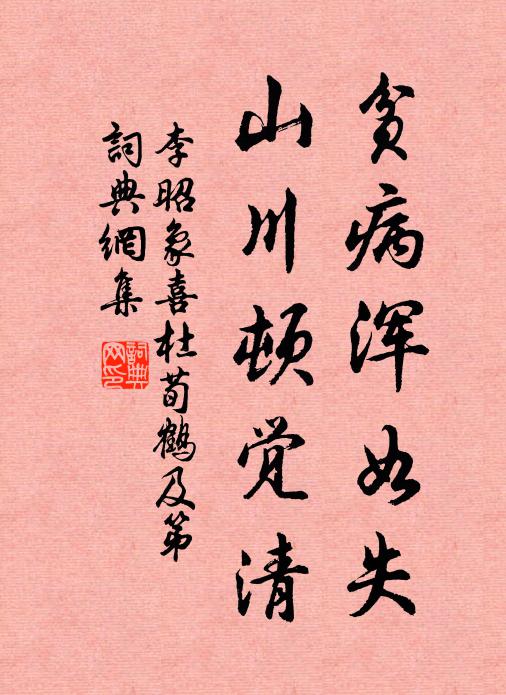 贫病浑如失
山川顿觉清
李昭象喜杜荀鹤及第
詞典網集
詞典网印